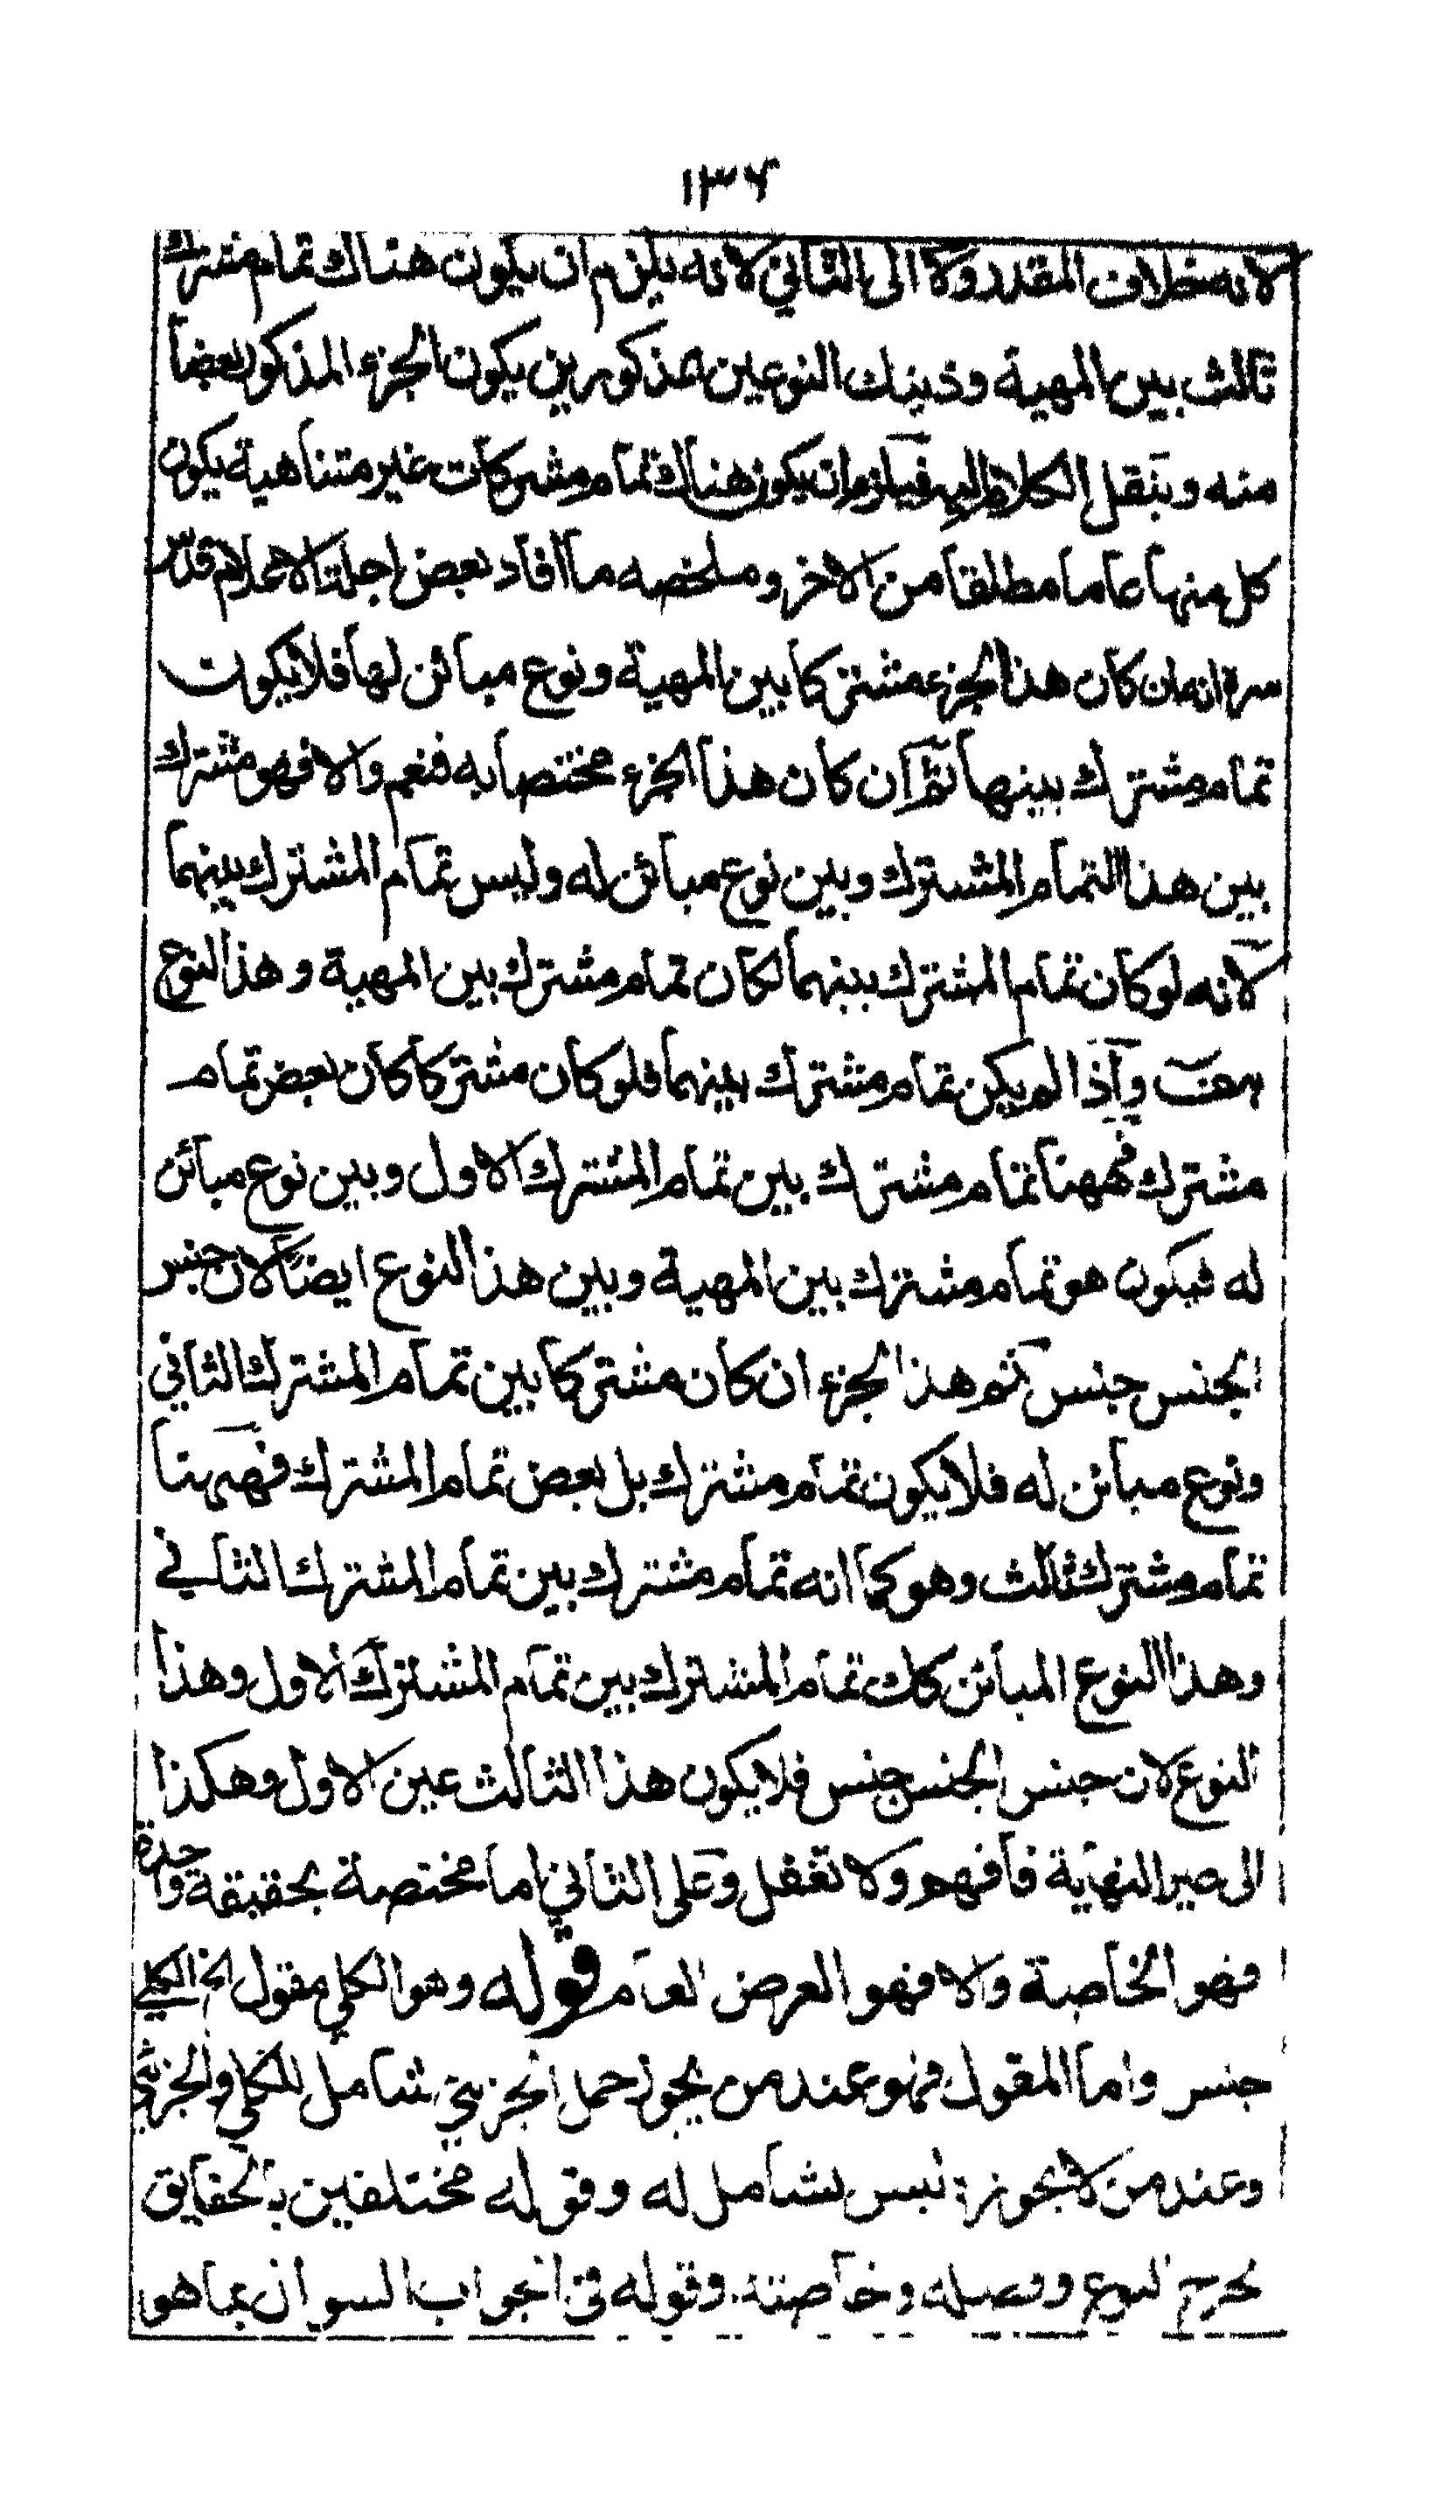 ١٣٦
لانه خلاف المقدر ولا الى الثاني لانه يلزم ان يكون هناك تمام مشترك
ثالث بين المهية وذينك النوعين مذكورين يكون الجزء المذكور بعضا
منه وينقل الكلام اليه فيلزم ان يكون هناك تمام مشتركات غير متناهية يكون
كل منها عاما مطلقا من الاخر وملخصه ما افاد بعض اجلتنا الاعلام قدس
سره انه ان كان هذا الجزء مشتركا بين المهية ونوع مبائن لها فلا يكون
تمام مشترك بينها ثم ان كان هذا الجزء مختصا به فنعم والا فهو مشترك
بين هذا التمام المشترك وبين نوع مبائن له وليس تمام المشترك بينهما
لانه لو كان تمام المشترك بينهما لكان تمام مشترك بين المهية وهذا النوع
هف واذا لم يكن تمام مشترك بينهما فلو كان مشتركا كان بعض تمام
مشترك فههنا تمام مشترك بين تمام المشترك الاول وبين نوع مبائن
له فيكون هو تمام مشترك بين المهية وبين هذا النوع ايضا لان جنس
الجنس جنس ثم هذا الجزء ان كان مشتركا بين تمام المشترك الثاني
ونوع مبائن له فلا يكون تمام مشترك بل بعض تمام المشترك فههنا
تمام مشترك ثالث وهو كما انه تمام مشترك بين تمام المشترك الثاني
وهذا النوع المبائن كك تمام المشترك بين تمام المشترك الاول وهذا
النوع لان جنس الجنس جنس فلا يكون هذا الثالث عين الاول وهكذا
الى النهاية فافهم ولا تغفل وعلى الثاني اما مختصة بحقيقة واحدة
فهو الخاصة والا فهو العرض العام قوله وهو الكلي مقول الخ الكلي
جنس واما المقول فهو عند من يجوز حمل الجزئي شامل للكلي والجزئي
وعند من لا يجوز ليس بشامل له وقوله مختلفين بالحقايق
يخرج النوع وفصيله وخاصته وقوله في الجواب السوال بما هو